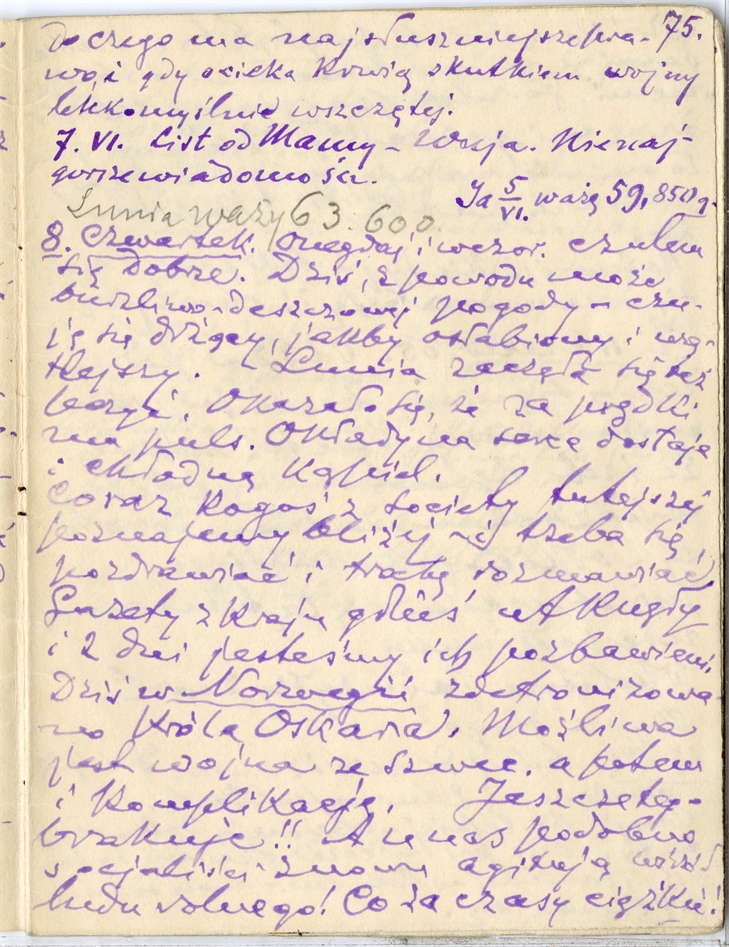 75.
do czego ma najsłuszniejsze pra-
wo, i gdy ocieka krwią skutkiem wojny
lekkomyślnie wszczętej.
7. VI. List od Mamy – Wuja. Nienaj-
gorsze wiadomości.
Ja 5/VI. ważę 59,850 g.
Lunia waży 63.600.
8. Czwartek. Onegdaj i wczor. czułem
się dobrze. Dziś, z powodu może
burzliwo-deszczowej pogody – czu-
ję się drżący, jakby osłabiony i wą-
tlejszy. – Lunia zaczęła się też
leczyć. Okazało się, że za prędki
ma puls. Okłady na serce dostaje
i chłodną kąpiel.
Coraz kogoś z society tutejszej
poznajemy bliżej – i trzeba się
pozdrawiać i trochę rozmawiać
Gazety z kraju gdzieś utknęły
i 2 dni jesteśmy ich pozbawieni.
Dziś w Norwegii zdetronizowa-
no króla Oskara. Możliwa
jest wojna ze Szwec. a potem
i komplikacje. Jeszcze tego
brakuje!! A u nas podobno
socjaliści znowu agitują wśród
ludu rolnego! Co za czasy ciężkie!